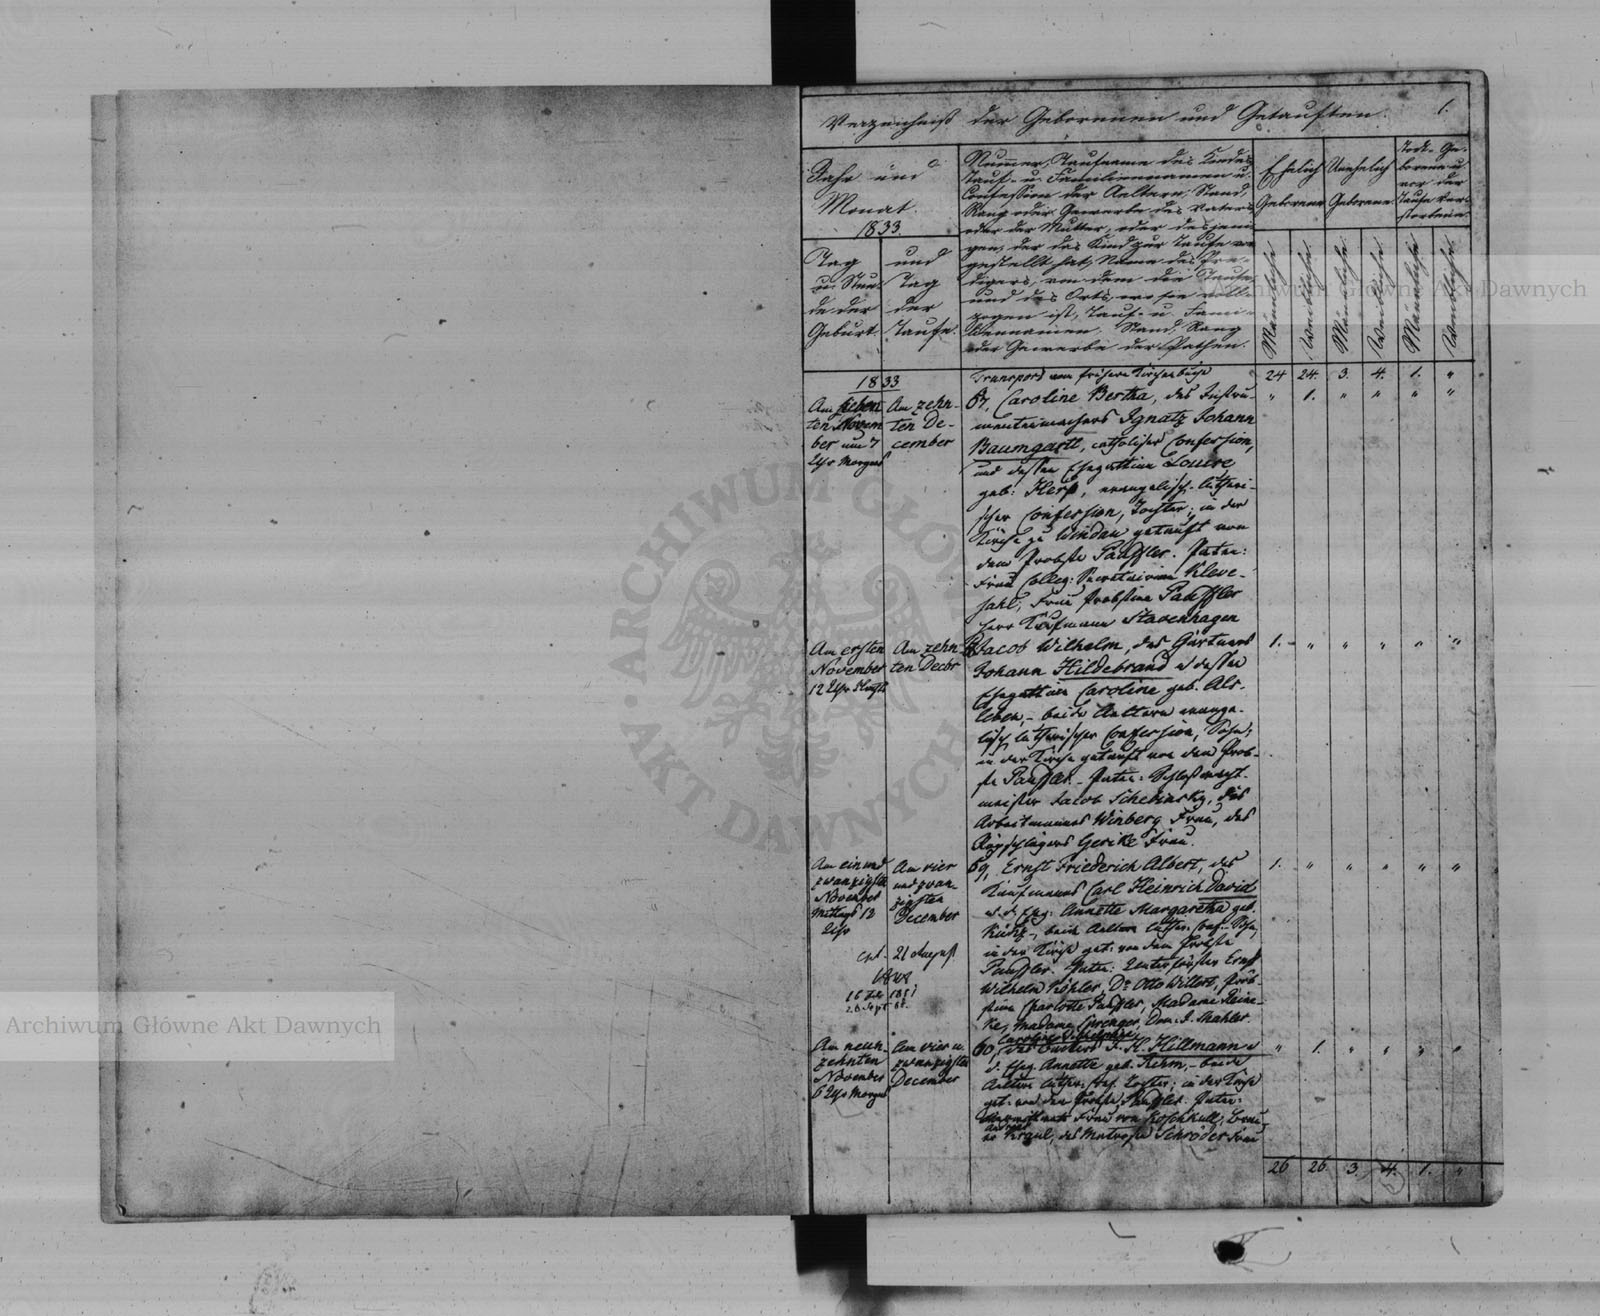 Verzeichniß der Geborenen und Getauften.
1.
Jahr und
Monat.
1833.
Tag
u. Stun-
de der
Geburt.
und
Tag
der
Taufe.
Nummer, Taufname des Kindes,
Tauf- u. Familiennamen u.
Confession der Aeltern, Stand,
Rang oder Gewerbe des Vaters
oder der Mutter, oder desjeni-
gen, der das Kind zur Taufe vor-
gestellt hat, Name des Pre-
digers, von dem die Taufe,
und des Orts, wo sie voll-
zogen ist, Tauf- u. Fami-
liennamen, Stand, Rang
oder Gewerbe der Pathen.
Ehelich
Geborene
Unehelich
Geborene
Todt-Ge-
borene u.
vor der
Taufe Ver-
storbene
Männliche.
Weibliche.
Männliche.
Weibliche.
Männliche.
Weibliche.
1833
Transport vom frühern Kirchenbuche
24 24. 3. 4. 1. "
Am sieben
ten Novem
ber um 7
Uhr Morgens
Am zehn-
ten De-
cember
Caroline Bertha, des Instru-
mentenmachers Ignatz Johann
Baumgartl, catholischer Confession,
und dessen Ehegattinn Louise
geb: evangelisch-lutheri-
scher Confession, Tochter; in der
Kirche zu Windau getauft von
dem Probste Pauffler. Paten:
Frau Colleg: Secretairinn Kleve-
sahl, Frau Probstinn Pauffler
Herr Kaufmann Stavenhagen
" 1. " " " "
Am ersten
November
12 Uhr
Am zehn-
ten Decbr
Jacob Wilhelm, des Gärtners
Johann Hildebrand u dessen
Ehegattinn Caroline geb. Als-
leben, - beide Aeltern evange-
lisch lutherischer Confession, Sohn;
in der Kirche getauft von dem Prob-
ste Pauffler. Paten: Schloßwacht-
meister Jacob Schebinsky, des
Arbeitmannes Winberg Frau, des
Reepschlägers Gerike Frau.
1. " " " " "
Am ein und
zwanzigsten
November
Mittags 12
Uhr
Am vier
und zwan-
zigsten
December
59, Ernst Friederich Albert, des
Kaufmanns Carl Heinrich David
u. d. Eheg: Annette Margaretha geb.
beide Aeltern luther: Conf: Sohn,
in der Kirche get: von dem Probste
Pauffler. Paten: Ernst
Wilhelm Köhler, Dr Otto Willert, Prob-
stinn Charlotte Pauffler, Madame Reine-
ke, Madame Sprenger, Dem: J. Mahler.
1. " " " " "
21 August
Am neun-
zehnten
November
6 Uhr Morgens
Am vier u
zwanzigsten
December
60, Caroline Wilhelmine
des J. H. Hillmann u
d. Eheg. Annette geb. Rehm, - beide
Aeltern luther: Conf. Tochter; in der Kirche
get: von dem Probste Pauffler. Paten:
Frau von Koschkull,
Kraul, des Matrosen Schröder Frau
" 1. " " " "
26 26. 3. 4. 1. "
Archiwum Główne Akt Dawnych
Archiwum Główne Akt Dawnych
ARCHIWUM GŁÓWNE
AKT DAWNYCH